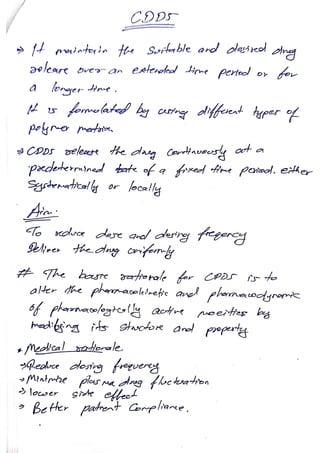 CDDS
→ It maintain the Suitable and desired drug
release over an extended time period or for
a longer time.
It is formulated by using different types of
polymer matrix.
→ CDDS release the drug continuously at a
predetermined rate of a fixed time period. either
Systematically or locally
Aim:
To reduce dose and dosing freqency
Deliver the drug uniformly
# The basic rationale for CDDS is to
alter the pharmacokinetic and pharmacodynamic
of pharmacologically active moeities by
modifying its structure and property
* Medical rationale
→ Reduce dosing frequency
→ Minimize plasma drug fluctuation
→ lower side effect
→ Better patient Compliance.